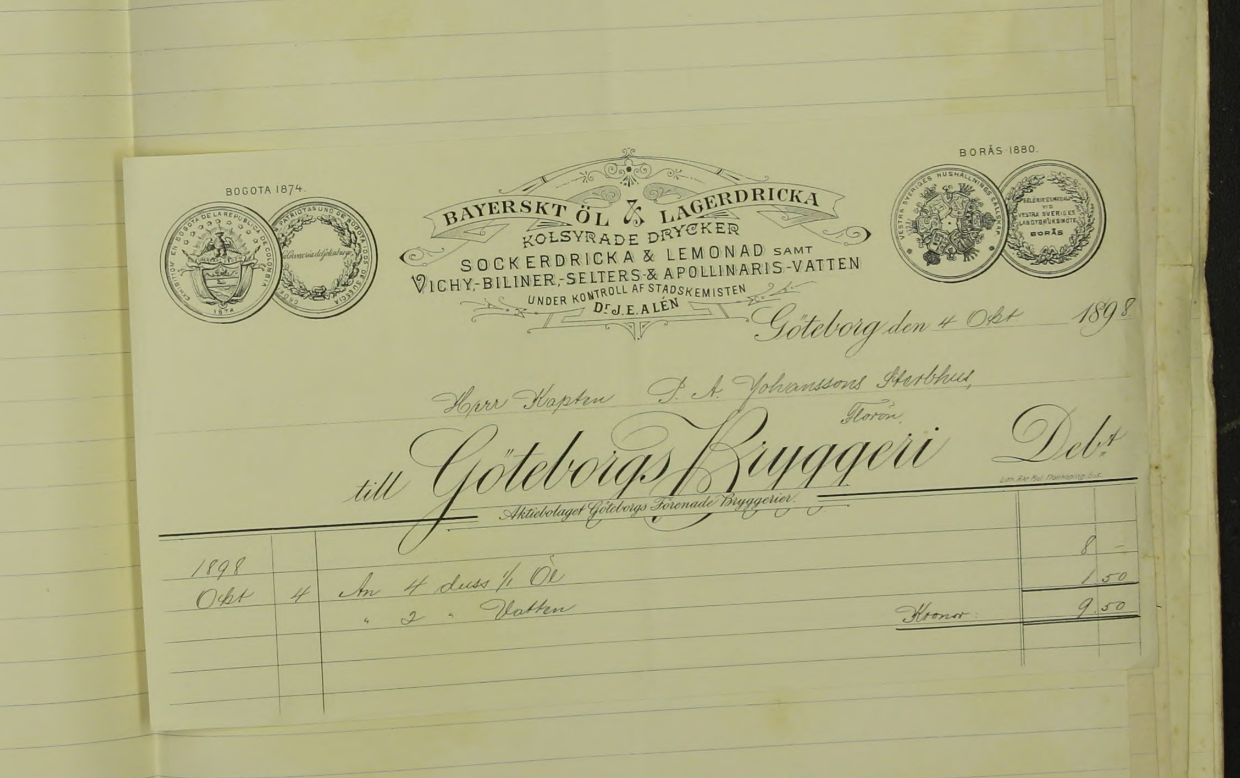 BOGOTA 1874.
BORÅS 1880.
EXHIBITION EN BOGOTA DE LA REPUBLICA DE COLOMBIA
1874
VESTRA SVERIGES HUSHÅLLNINGS
VID
VESTRA SVERIGES
LANDTBRUKSMÖTE
BORÅS
BAYERSKT ÖL & LAGERDRICKA
KOLSYRADE DRYCKER
SOCKERDRICKA & LEMONAD SAMT
VICHY,-BILINER,-SELTERS-& APOLLINARIS-VATTEN
UNDER KONTROLL AF STADSKEMISTEN
Dr J.E. ALÉN
Göteborg den 4 Okt 1898
Herr Kapten P. A. Johanssons Sterbhus,
till Göteborgs Bryggeri Debt
Aktiebolaget Göteborgs Förenade Bryggerier.
1898
Okt 4 An 4 duss 1/1 Öl 8 –
" 2 " Vatten 1 50
Kronor 9.50